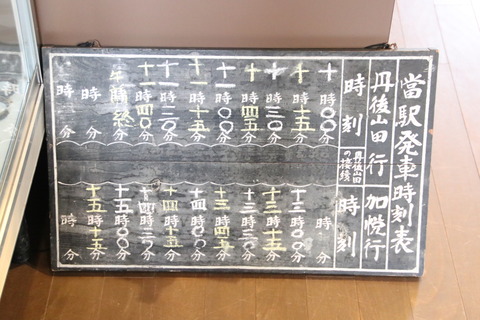 當駅発車時刻表
丹後山田行
加悦行
時刻
丹後山田の接続
時刻
十時〇〇分
十時十五分
十時三〇分
十時四五分
十一時〇〇分
十一時十五分
十一時三〇分
十一時四〇分
午前終
時 分
時 分
時 分
十三時〇〇分
十三時十五分
十三時三〇分
十三時四五分
十四時〇〇分
十四時十五分
十四時三〇分
十五時〇〇分
十五時十五分
時 分